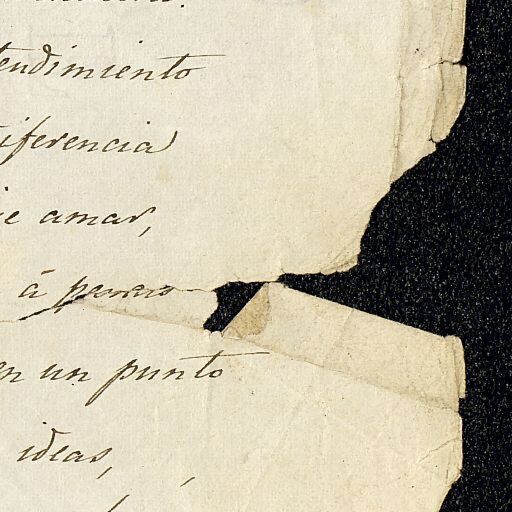 tendimiento
iferencia
e amar,
á
en un punto
ideas,